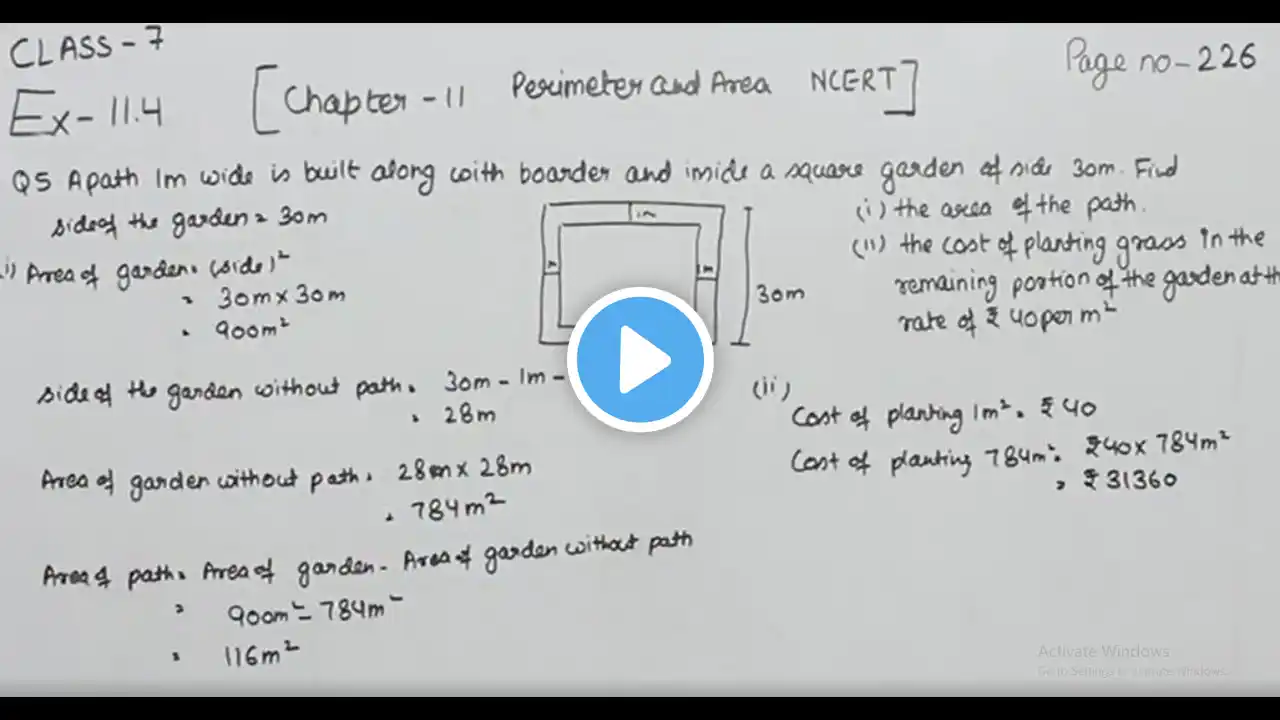 CLASS - 7
Ex - 11.4
[Chapter - 11 Perimeter and Area NCERT]
Page no - 226
Q5 A path 1m wide is built along with boarder and inside a square garden of side 30m. Find
(i) the area of the path.
(ii) the cost of planting grass in the
remaining portion of the garden at th
rate of ₹ 40 per m²
side of the garden = 30m
i) Area of garden = (side)²
= 30m × 30m
= 900m²
1m
1m
30m
side of the garden without path = 30m - 1m -
= 28m
Area of garden without path = 28m × 28m
= 784m²
Area of path = Area of garden - Area of garden without path
= 900m² - 784m²
= 116m²
(ii)
Cost of planting 1m² = ₹ 40
Cost of planting 784m² = ₹40 × 784m²
= ₹ 31360
Activate Windows
Go to Settings to activate Windows.